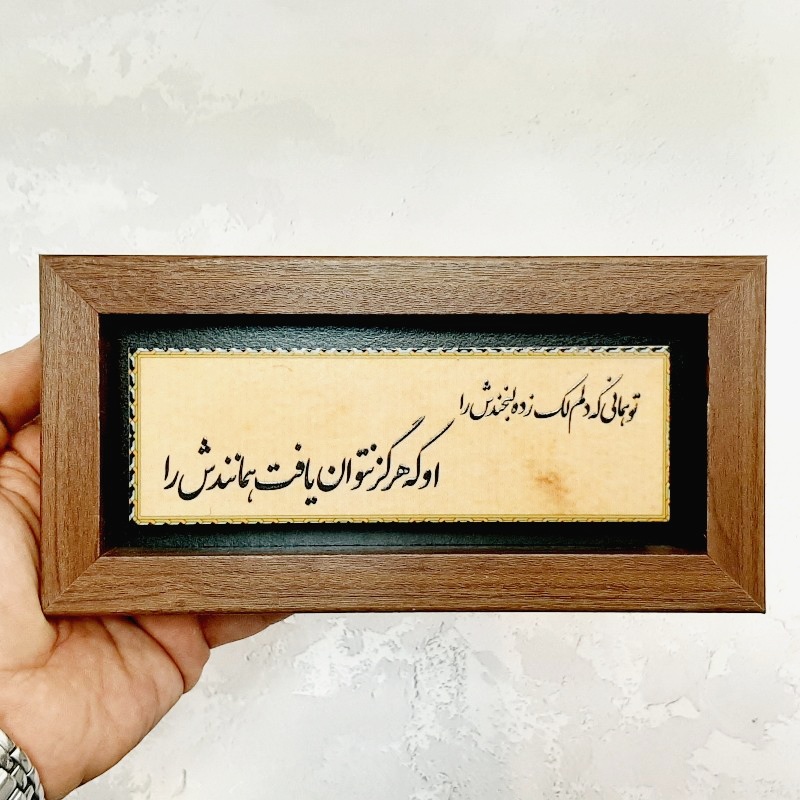 تو همانی که دلم لک زده لبخندش را
او که هرگز نتوان یافت همانندش را